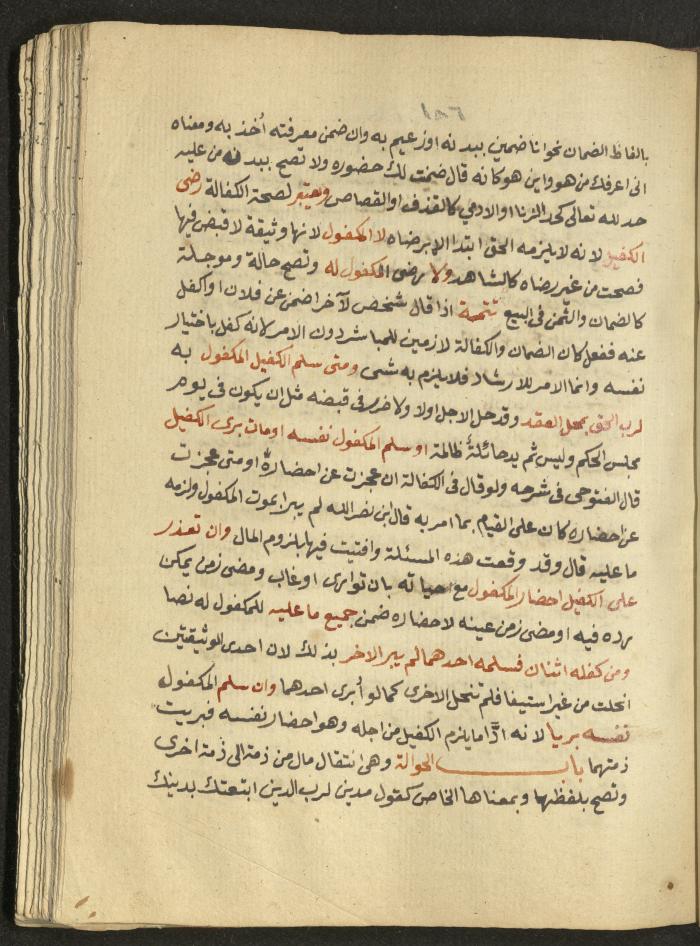 ١٨٦
بالفاظ الضمان نحو انا ضمين ببدنه او زعيم به وان ضمن معرفته أُخذ به ومعناه
اني اعرفك من هو واين هو كانه قال ضمنت لك حضوره ولا تصح ببدن من عليه
حد لله تعالى كحد الزنا او الادمي كالقذف او القصاص ويعتبر لصحة الكفالة رضى
الكفيل لانه لا يلزمه الحق ابتدا الا برضاه لا المكفول لانها وثيقة لا قبض فيها
فصحت من غير رضاه كالشاهد ولا رضى المكفول له وتصح حالة ومؤجلة
كالضمان والثمن في البيع تتمة اذا قال شخص لآخر اضمن عن فلان او اكفل
عنه ففعل كان الضمان والكفالة لازمين للمباشر دون الامر لانه كفل باختيار
نفسه وانما الامر للارشاد فلا يلزم به شى ومتى سلم الكفيل المكفول به
لرب الحق بمحل العقد وقد حل الاجل اولا ولا ضرر في قبضه مثل ان يكون في يوم
مجلس الحكم وليس ثم يد حائلةٌ ظالمة او سلم المكفول نفسه او مات برى الكفيل
قال الفتوحي في شرحه ولو قال في الكفالة ان عجزت عن احضاره او متى عجزت
عن احضاره كان على القيام بما امر به قال ابن نصر الله لم يبرا بموت المكفول ولزمه
ما عليه قال وقد وقعت هذه المسئلة وافتيت فيها بلزوم المال وان تعذر
على الكفيل احضار المكفول مع حياته بان توارى او غاب ومضى زمن يمكن
رده فيه او مضى زمن عينه لاحضاره ضمن جميع ما عليه للمكفول له نصا
ومن كفله اثنان فسلمه احدهما لم يبرا الاخر بذلك لان احدى الوثيقتين
انحلت من غير استيفا فلم تنحل الاخرى كما لو أُبرى احدهما وان سلم المكفول
نفسه بريا لانه ادّا ما يلزم الكفيل من اجله وهو احضار نفسه فبريت
ذمتهما باب الحوالة وهي انتقال مال من ذمة الى ذمة اخرى
وتصح بلفظها وبمعناها الخاص كقول مدين لرب الدين اتبعتك بدينك